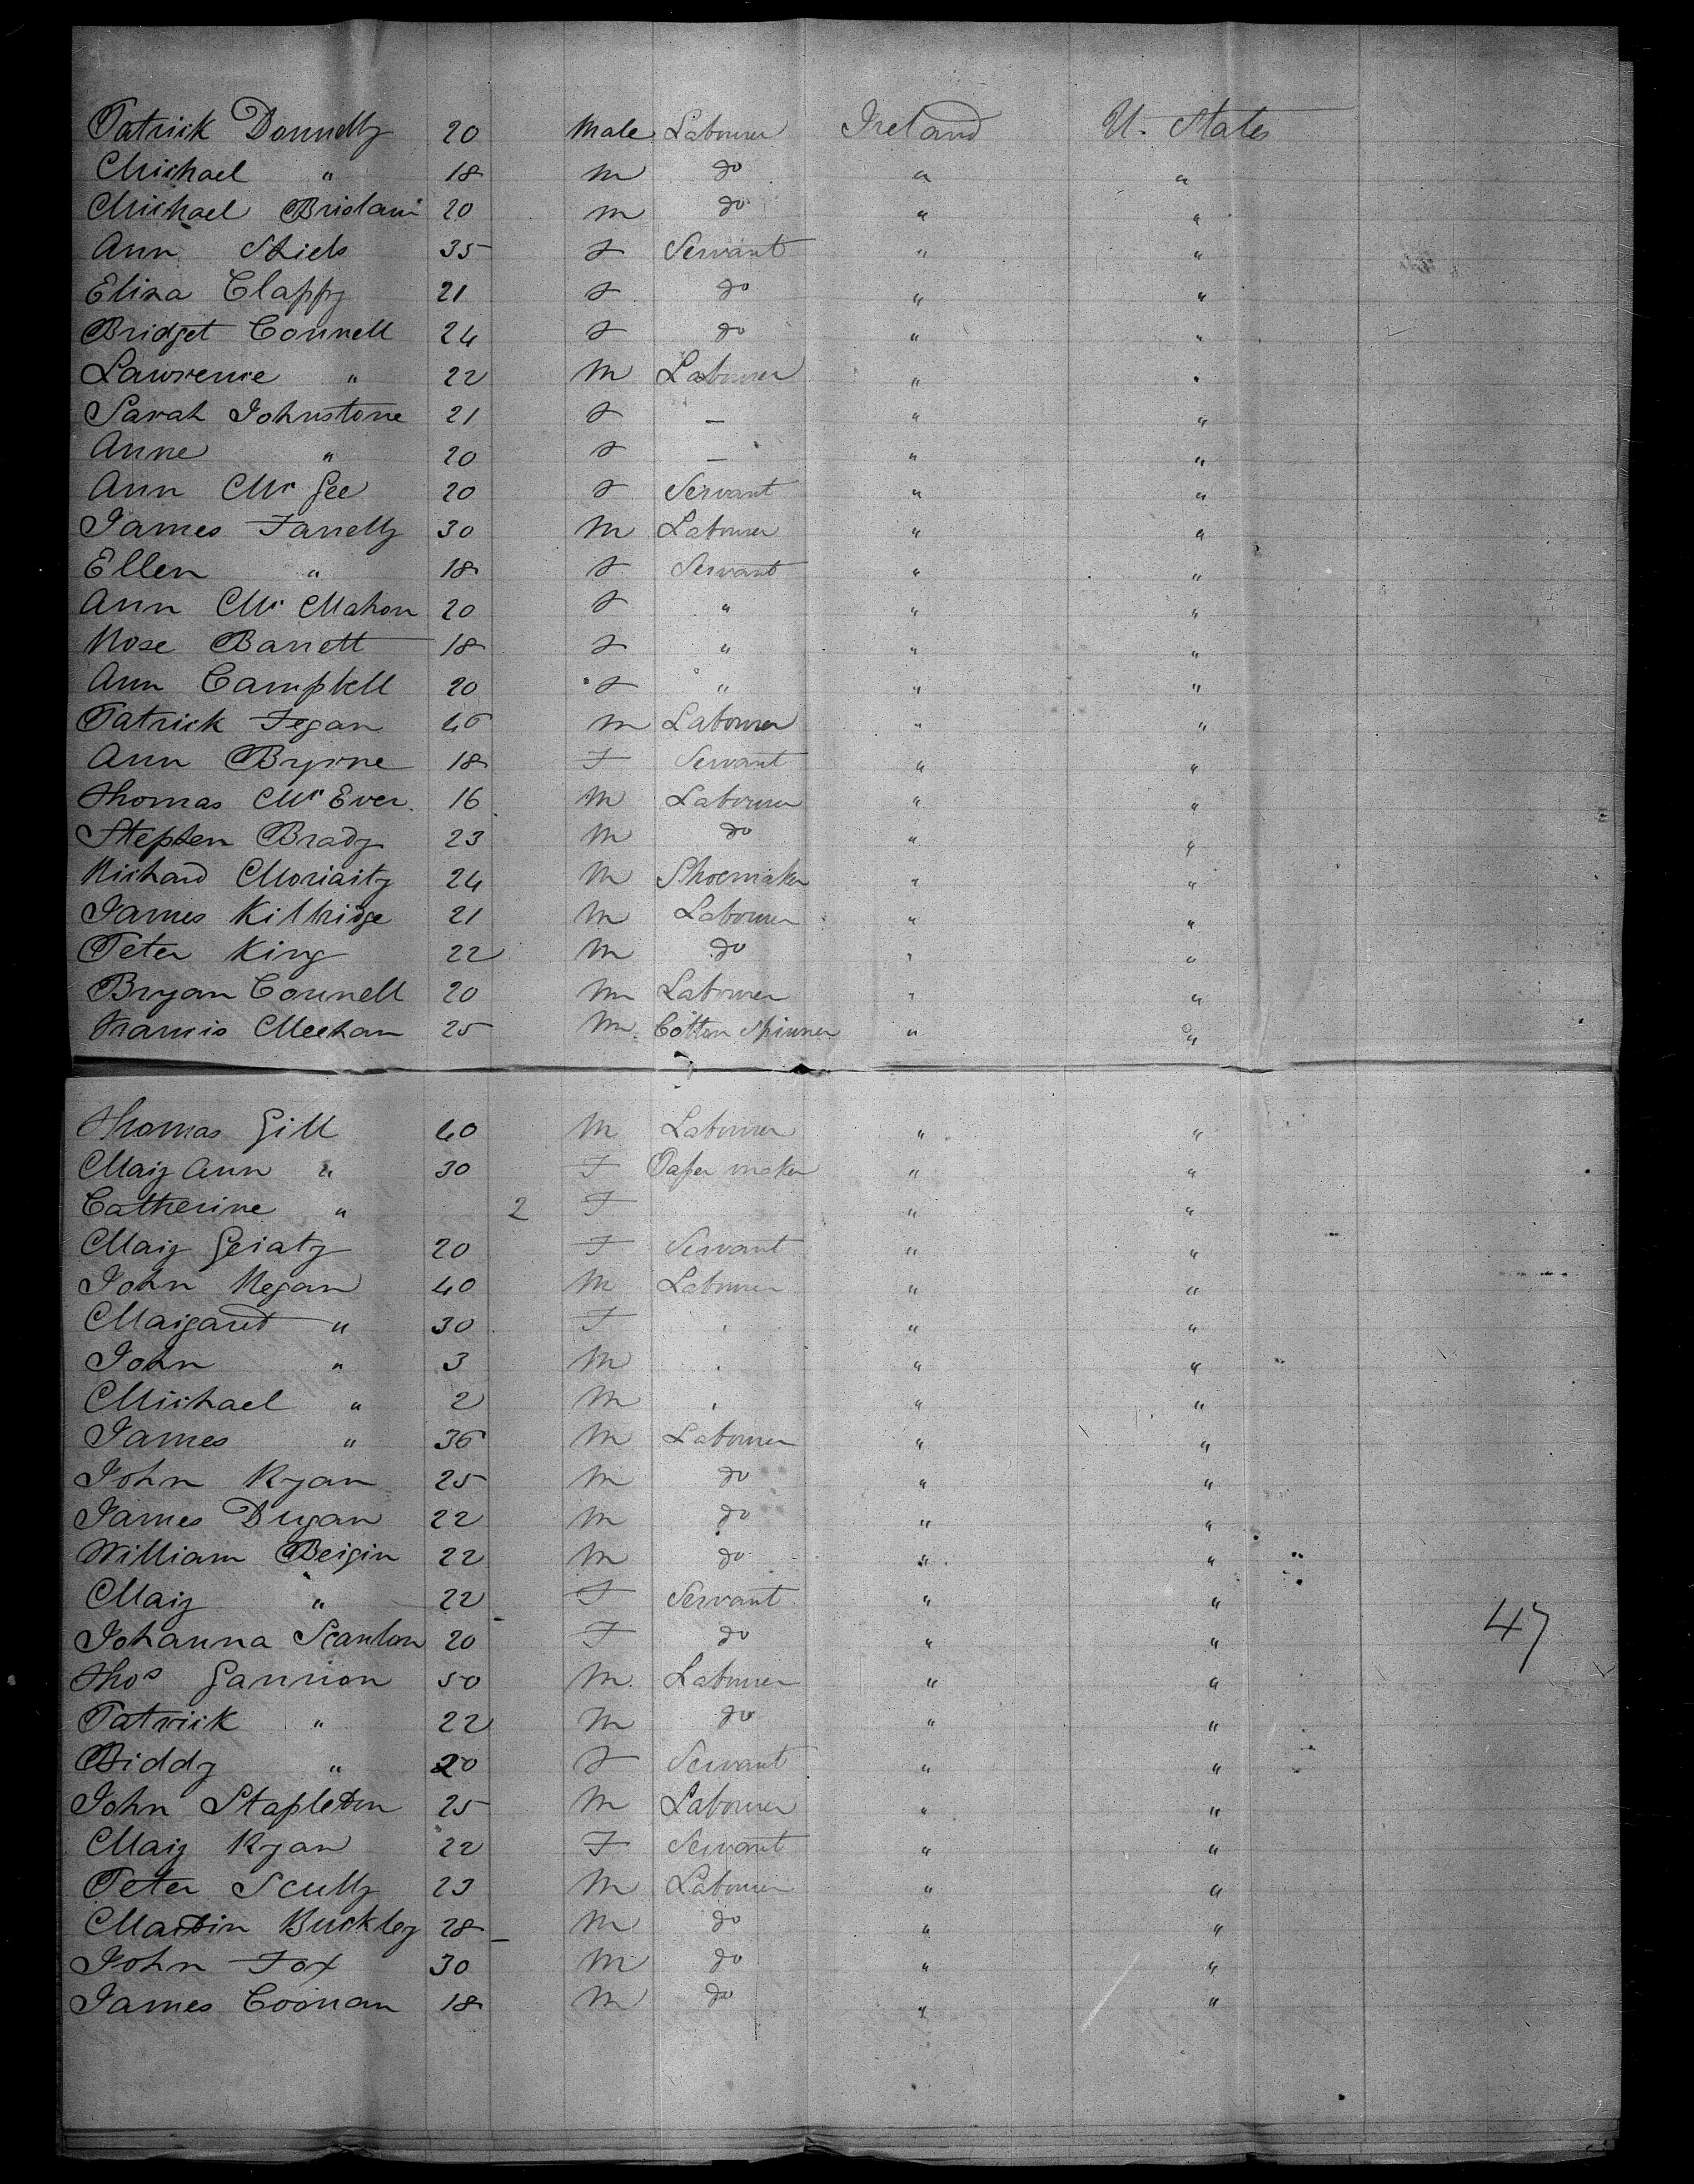 Patrick Donnelly 20 Male Labourer Ireland U. States
Michael " 18 m do " "
Michael Brislani 20 m do " "
Ann Shiels 35 f Servant " "
Eliza Clappy 21 f do " "
Bridget Connell 24 f do " "
Lawrence " 22 M Labourer " "
Sarah Johnstone 21 f — " "
Anne " 20 f — " "
Ann Mc Gee 20 f Servant " "
James Farrelly 30 M Labourer " "
Ellen " 18 f Servant " "
Ann Mc Mahon 20 f " " "
Rose Barrett 18 f " " "
Ann Campbell 20 f " " "
Patrick Fegan m Labourer " "
Ann Byrne 18 F Servant " "
Thomas Mc Ever. 16 M Labourer " "
Stephen Brady 23 M do " "
Richard Moriarty 24 M Shoemaker " "
James Kilbridge 21 M Labourer " "
Peter King 22 M do " "
Bryan Connell 20 M Labourer " "
Francis Meehan 25 M Cotton Spinner " "
Thomas Gill 40 M Labourer " "
Mary Ann " 30 F Paper maker " "
Catherine " 2 F " "
Mary Geraty 20 F Servant " "
John Regan 40 M Labourer " "
Margaret " 30 F " "
John " 3 M " "
Michael " 2 M " "
James " 36 M Labourer " "
John Ryan 25 M do " "
James Dugan 22 M do " "
William Bergin 22 M do " "
Mary " 22 F Servant " "
Johanna Scanlan 20 F do " "
Thos Gannion 50 M Labourer " "
Patrick " 22 M do " "
Biddy " 20 f Servant " "
John Stapleton 25 M Labourer " "
Mary Ryan 22 F Servant " "
Peter Scully 23 M Labourer " "
Martin Buckley 28 M do " "
John Fox 30 M do " "
James Coonan 18 M do " "
47